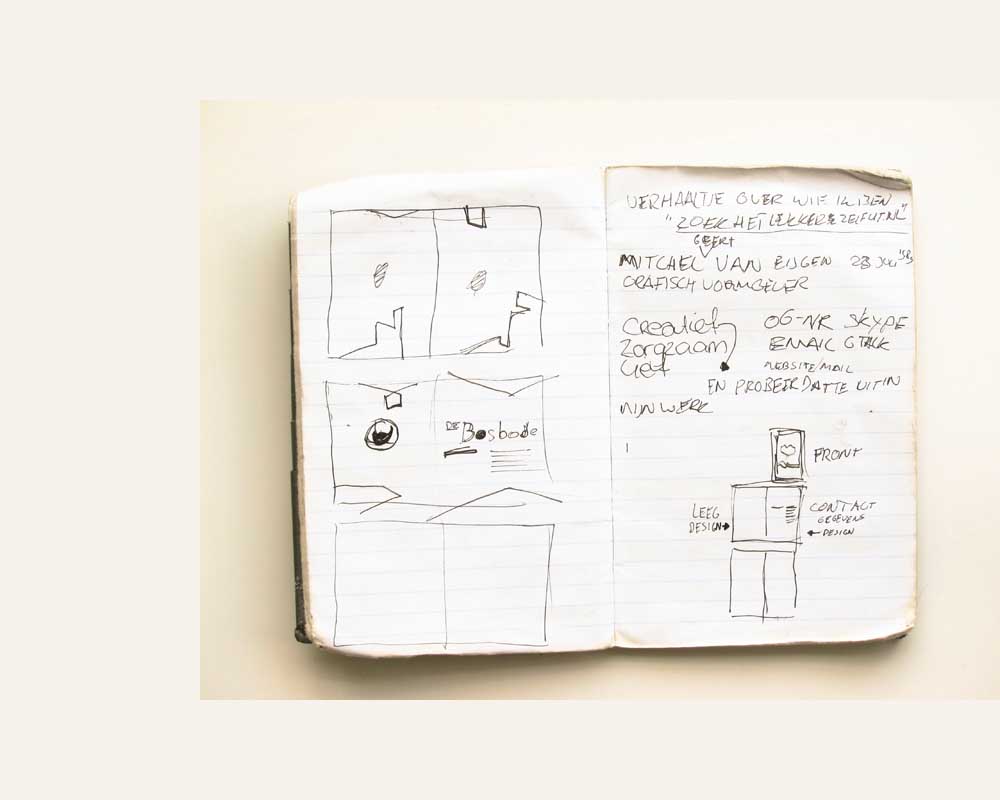 DE Bosbode
VERHAALTJE OVER WIE IK BEN
"ZOEK HET LEKKER ZELF UIT.NL"
GEERT
MITCHEL VAN EIJGEN 28 JULI '88
GRAFISCH VORMGEVER
Creatief
Zorgzaam
Lief
06-NR SKYPE
EMAIL GTALK
WEBSITE/MAIL
EN PROBEER DAT TE UIT IN
MIJN WERK
FRONT
LEEG
DESIGN
CONTACT
GEGEVENS
DESIGN